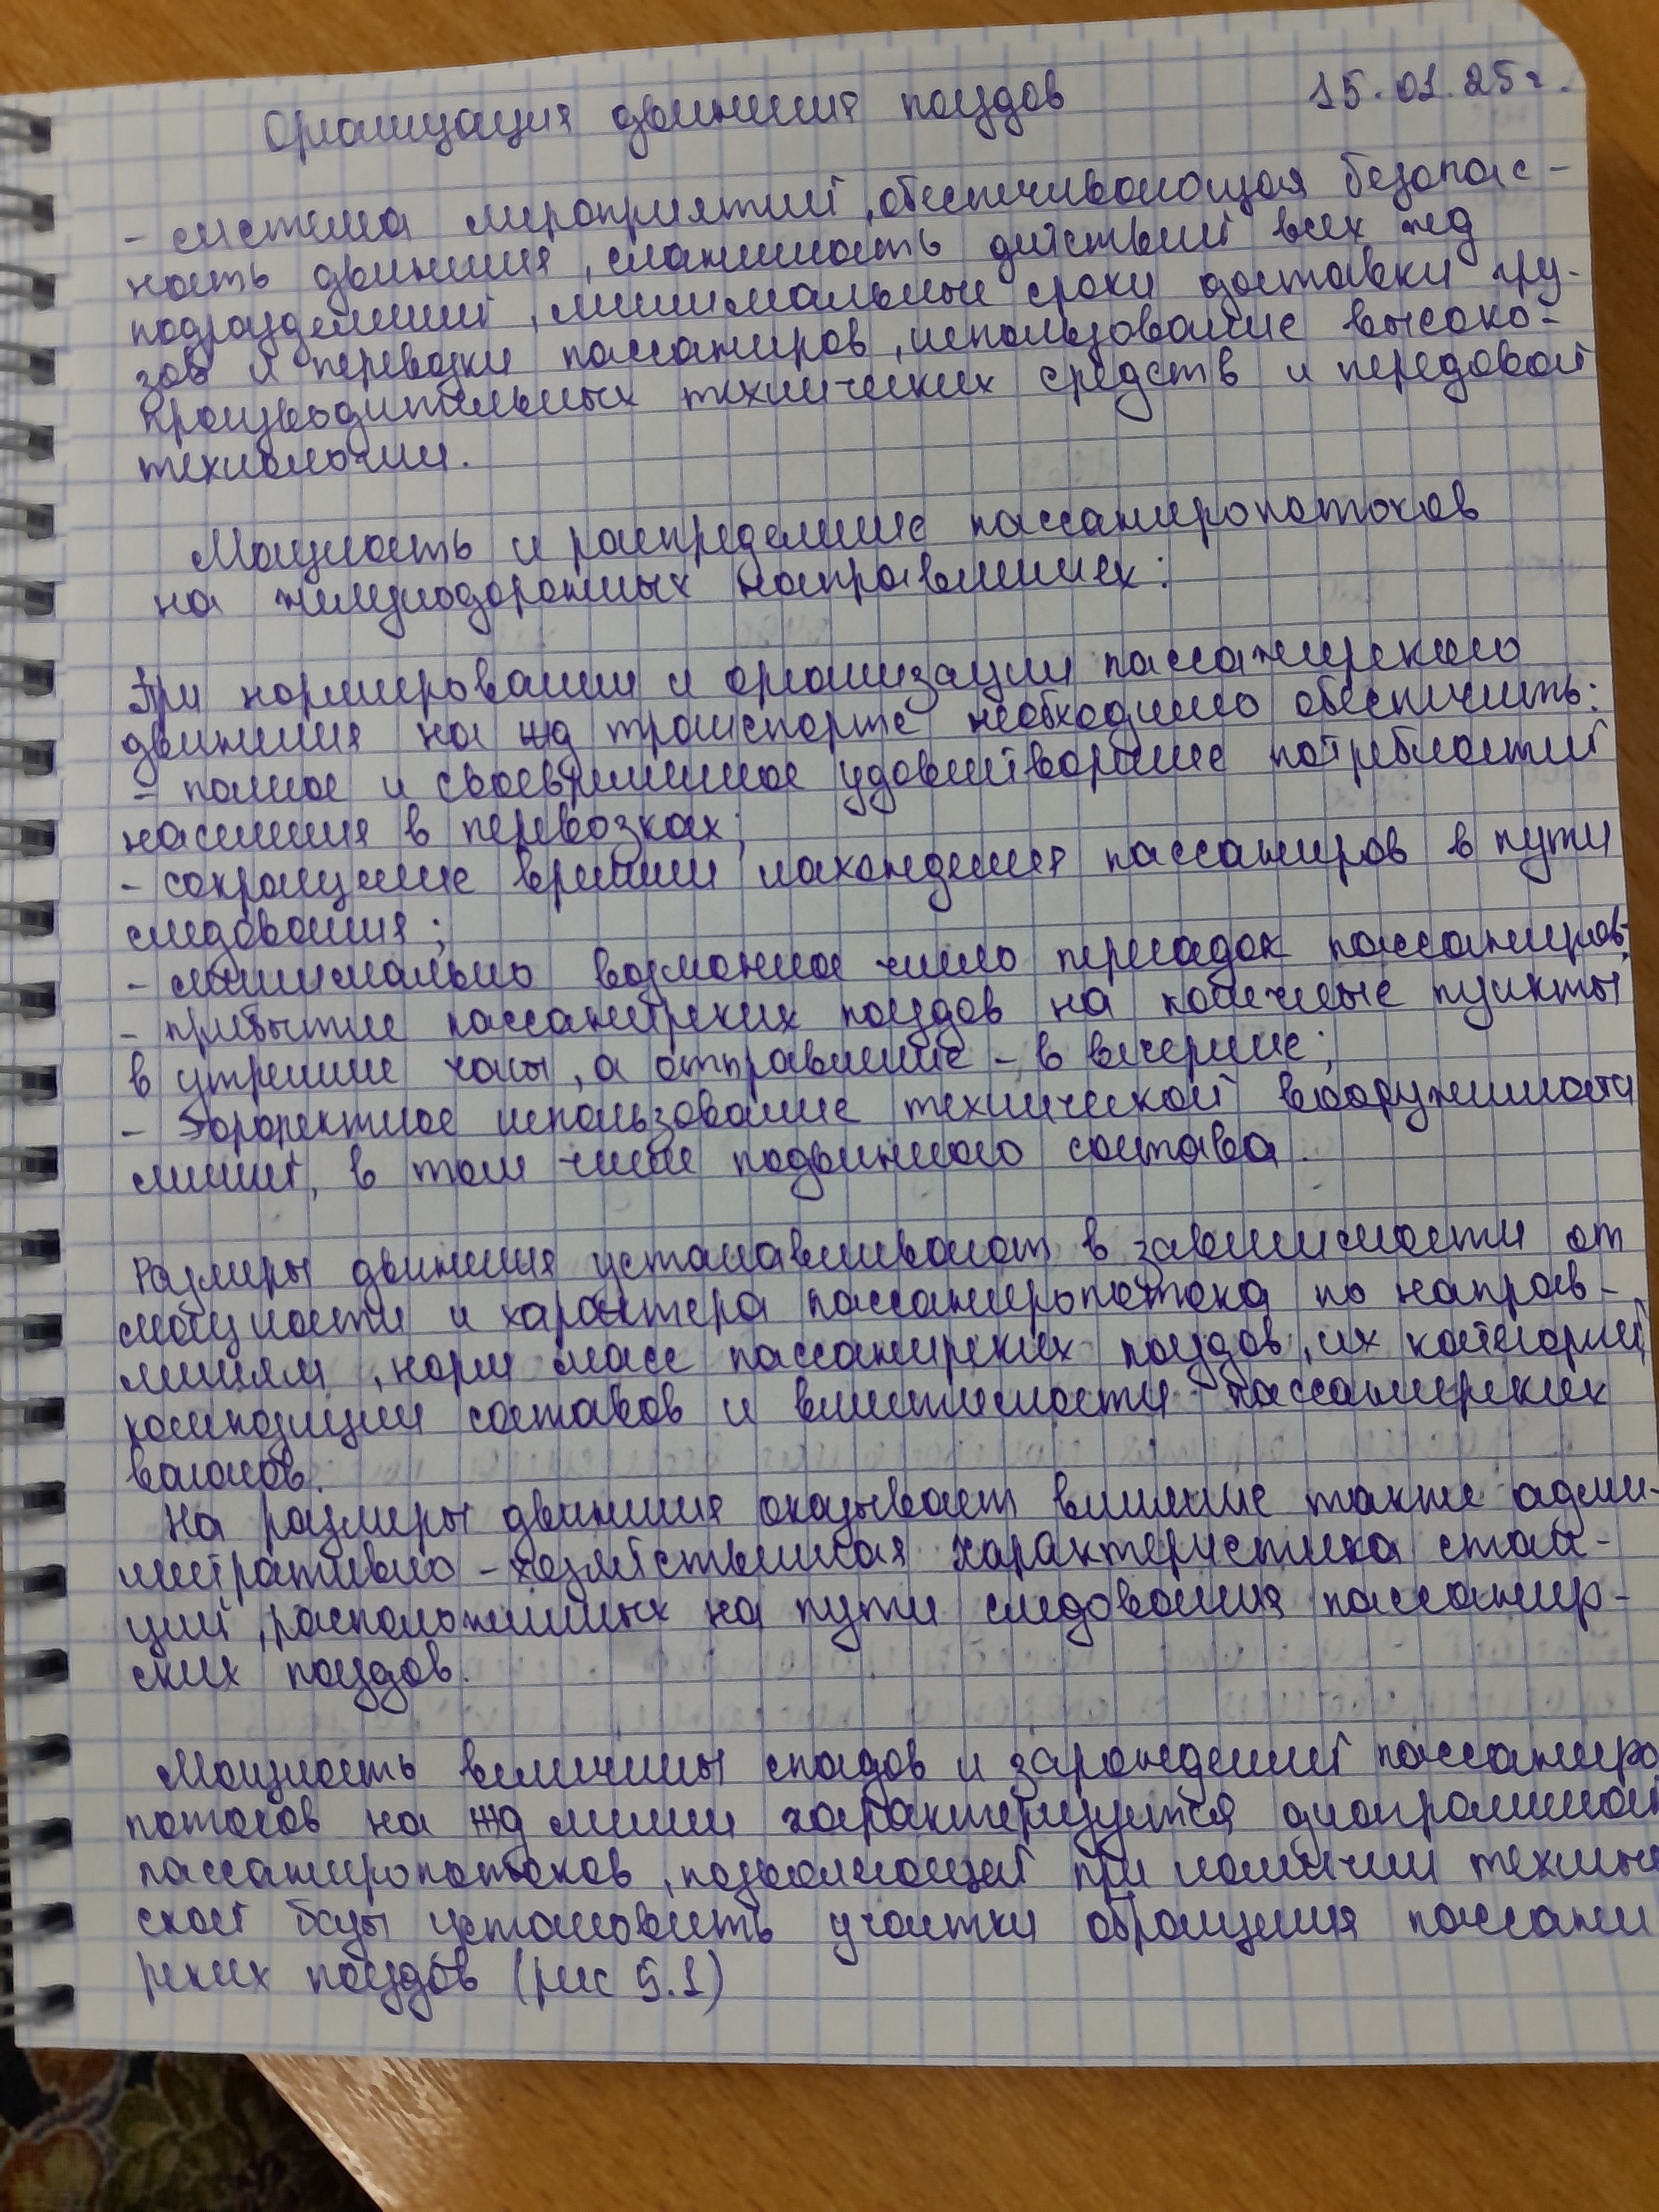 Организация движения поездов 15.01.25г.
- система мероприятий, обеспечивающая безопас-
ность движения, слаженность действий всех жд
подразделений, минимальные сроки доставки гру-
зов и перевозки пассажиров, использование высоко-
производительных технических средств и передовой
технологии.
Мощность и распределение пассажиропотоков
на железнодорожных направлениях:
При нормировании и организации пассажирского
движения на жд транспорте необходимо обеспечить:
- полное и своевременное удовлетворение потребностей
населения в перевозках;
- сокращение времени нахождения пассажиров в пути
следования;
- минимально возможное число пересадок пассажиров;
- прибытие пассажирских поездов на конечные пункты
в утренние часы, а отправление - в вечерние;
- эффективное использование технической вооруженности
линий, в том числе подвижного состава.
Размеры движения устанавливают в зависимости от
мощности и характера пассажиропотока по направ-
лениям, норм масс пассажирских поездов, их категорий,
композиции составов и вместимости пассажирских
вагонов.
На размеры движения оказывает влияние также адми-
нистративно-хозяйственная характеристика стан-
ций, расположенных на пути следования пассажир-
ских поездов.
Мощность величины спадов и зарождений пассажиро
потоков на жд линии характеризуется диаграммой
пассажиропотоков, позволяющей при наличии техниче
ской базы установить участки обращения пассажи
рских поездов (рис 5.1)